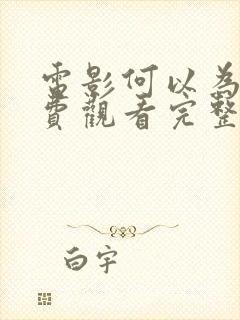 電影何以為
費觀看完整
白宇